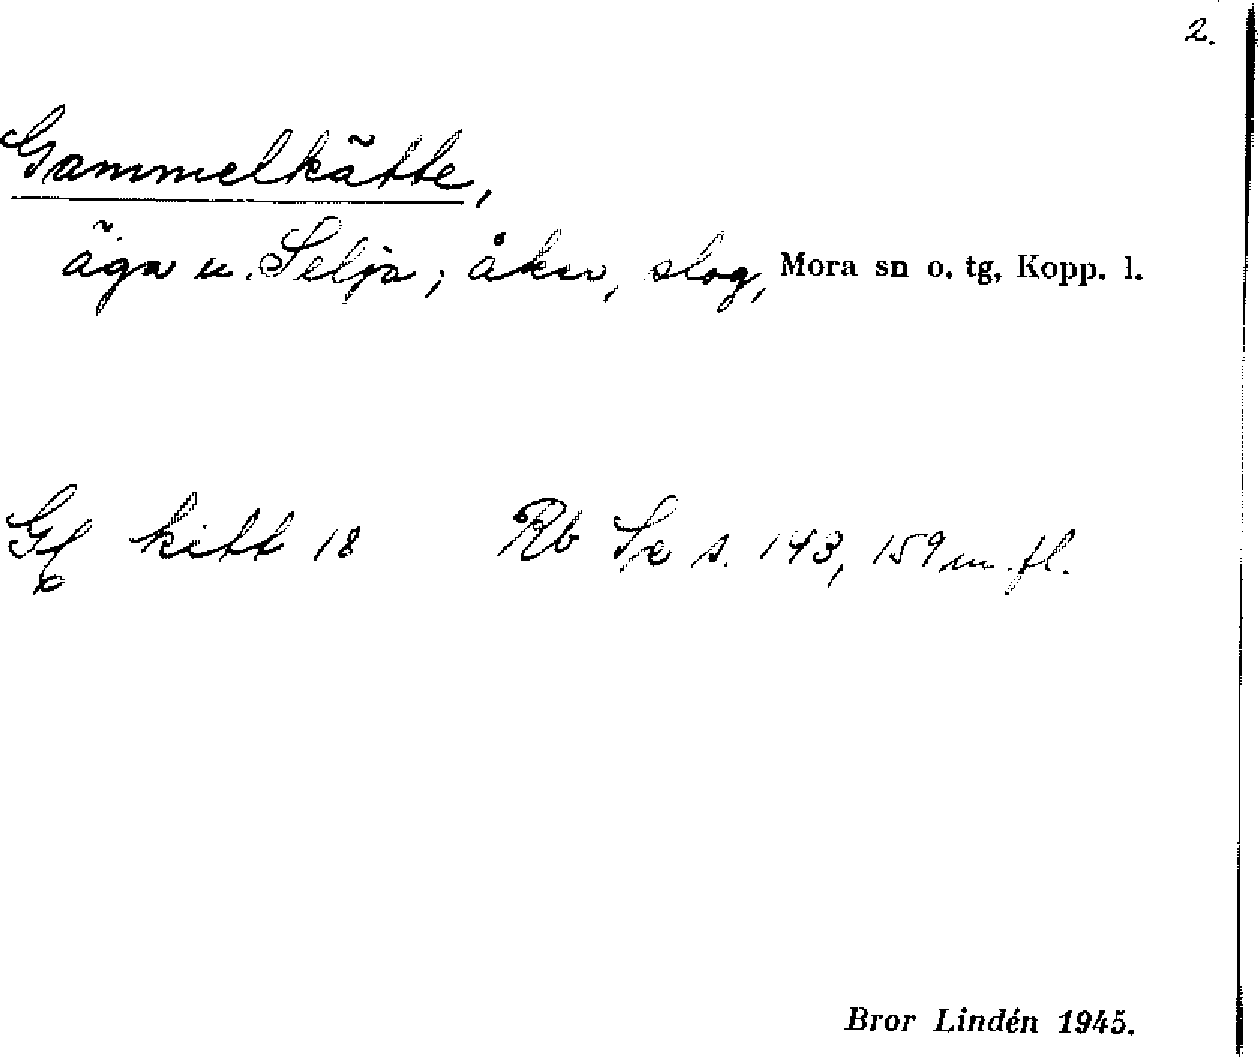 2.
Gammelkätte,
äga u. Selja; åker, slog, Mora sn o. tg, Kopp. l.
Gf kitt 18 Rb Se s. 143, 159 m. fl.
Bror Lindén 1945.